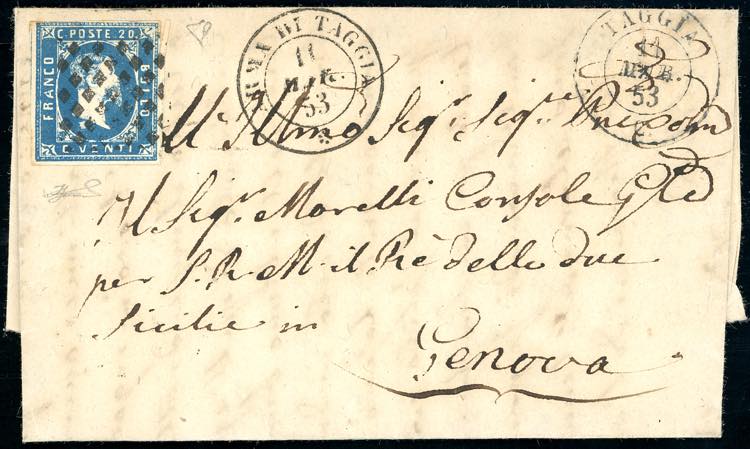 C. POSTE 20.
FRANCO
BOLLO
C. VENTI
ARMA DI TAGGIA
11
MAR.
53
TAGGIA
11
MAR.
53
All' Illmo Sigr. Sigr.
Il Sigr. Morelli Console Gle
per S. R. M. il Rè delle due
Sicilie in
Genova